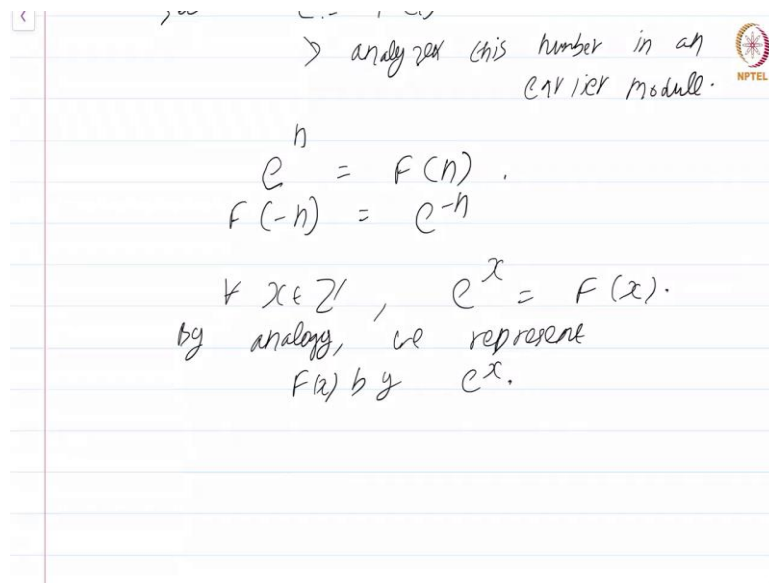 > analyzed this number in an
earlier module.
NPTEL
e^n = F(n).
F(-n) = e^-n
∀ x ∈ ℤ, e^x = F(x).
By analogy, we represent
F(x) by e^x.